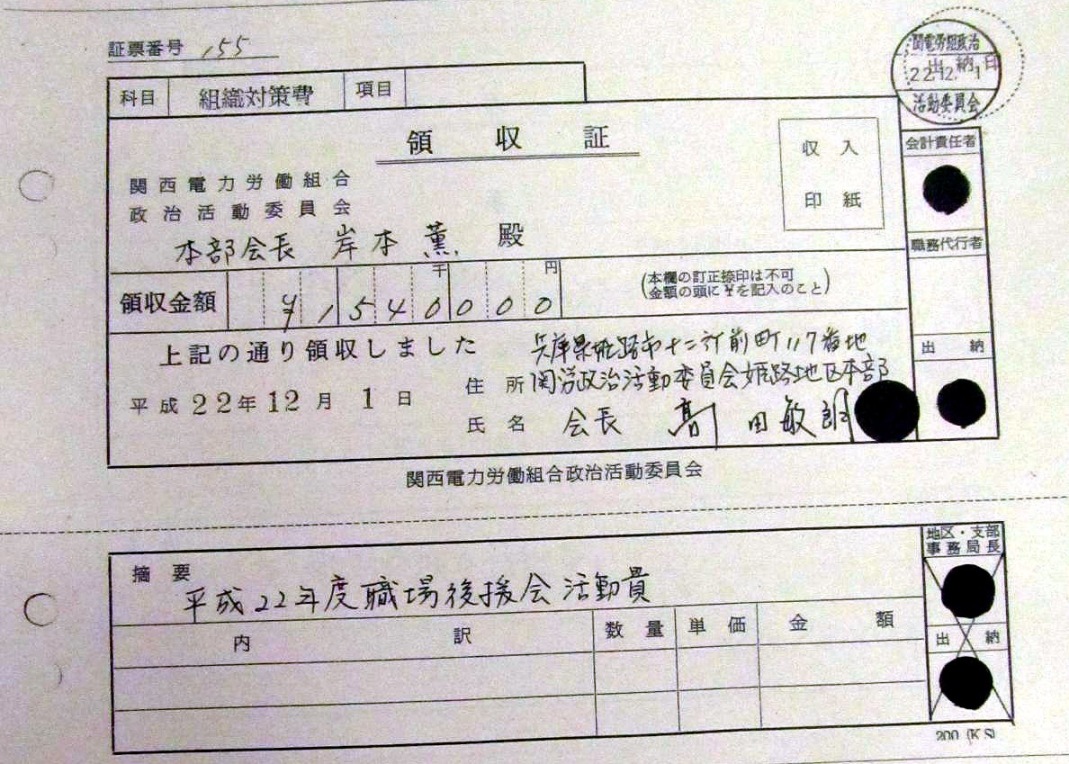 証票番号 155
関電労組政治
出納印
22.12.1
活動委員会
科目 組織対策費 項目
領収証
収入
印紙
会計責任者
関西電力労働組合
政治活動委員会
本部会長 岸本 薫 殿
職務代行者
千 円
領収金額 ¥1540000
(本欄の訂正捺印は不可
金額の頭に¥を記入のこと)
上記の通り領収しました
兵庫県姫路市十二所前町117番地
出納
住所 関労政治活動委員会姫路地区本部
平成22年12月1日
氏名 会長 高田敏朗
関西電力労働組合政治活動委員会
地区・支部
事務局長
摘要
平成22年度職場後援会活動費
内訳 数量 単価 金額
出納
200 (K.S)